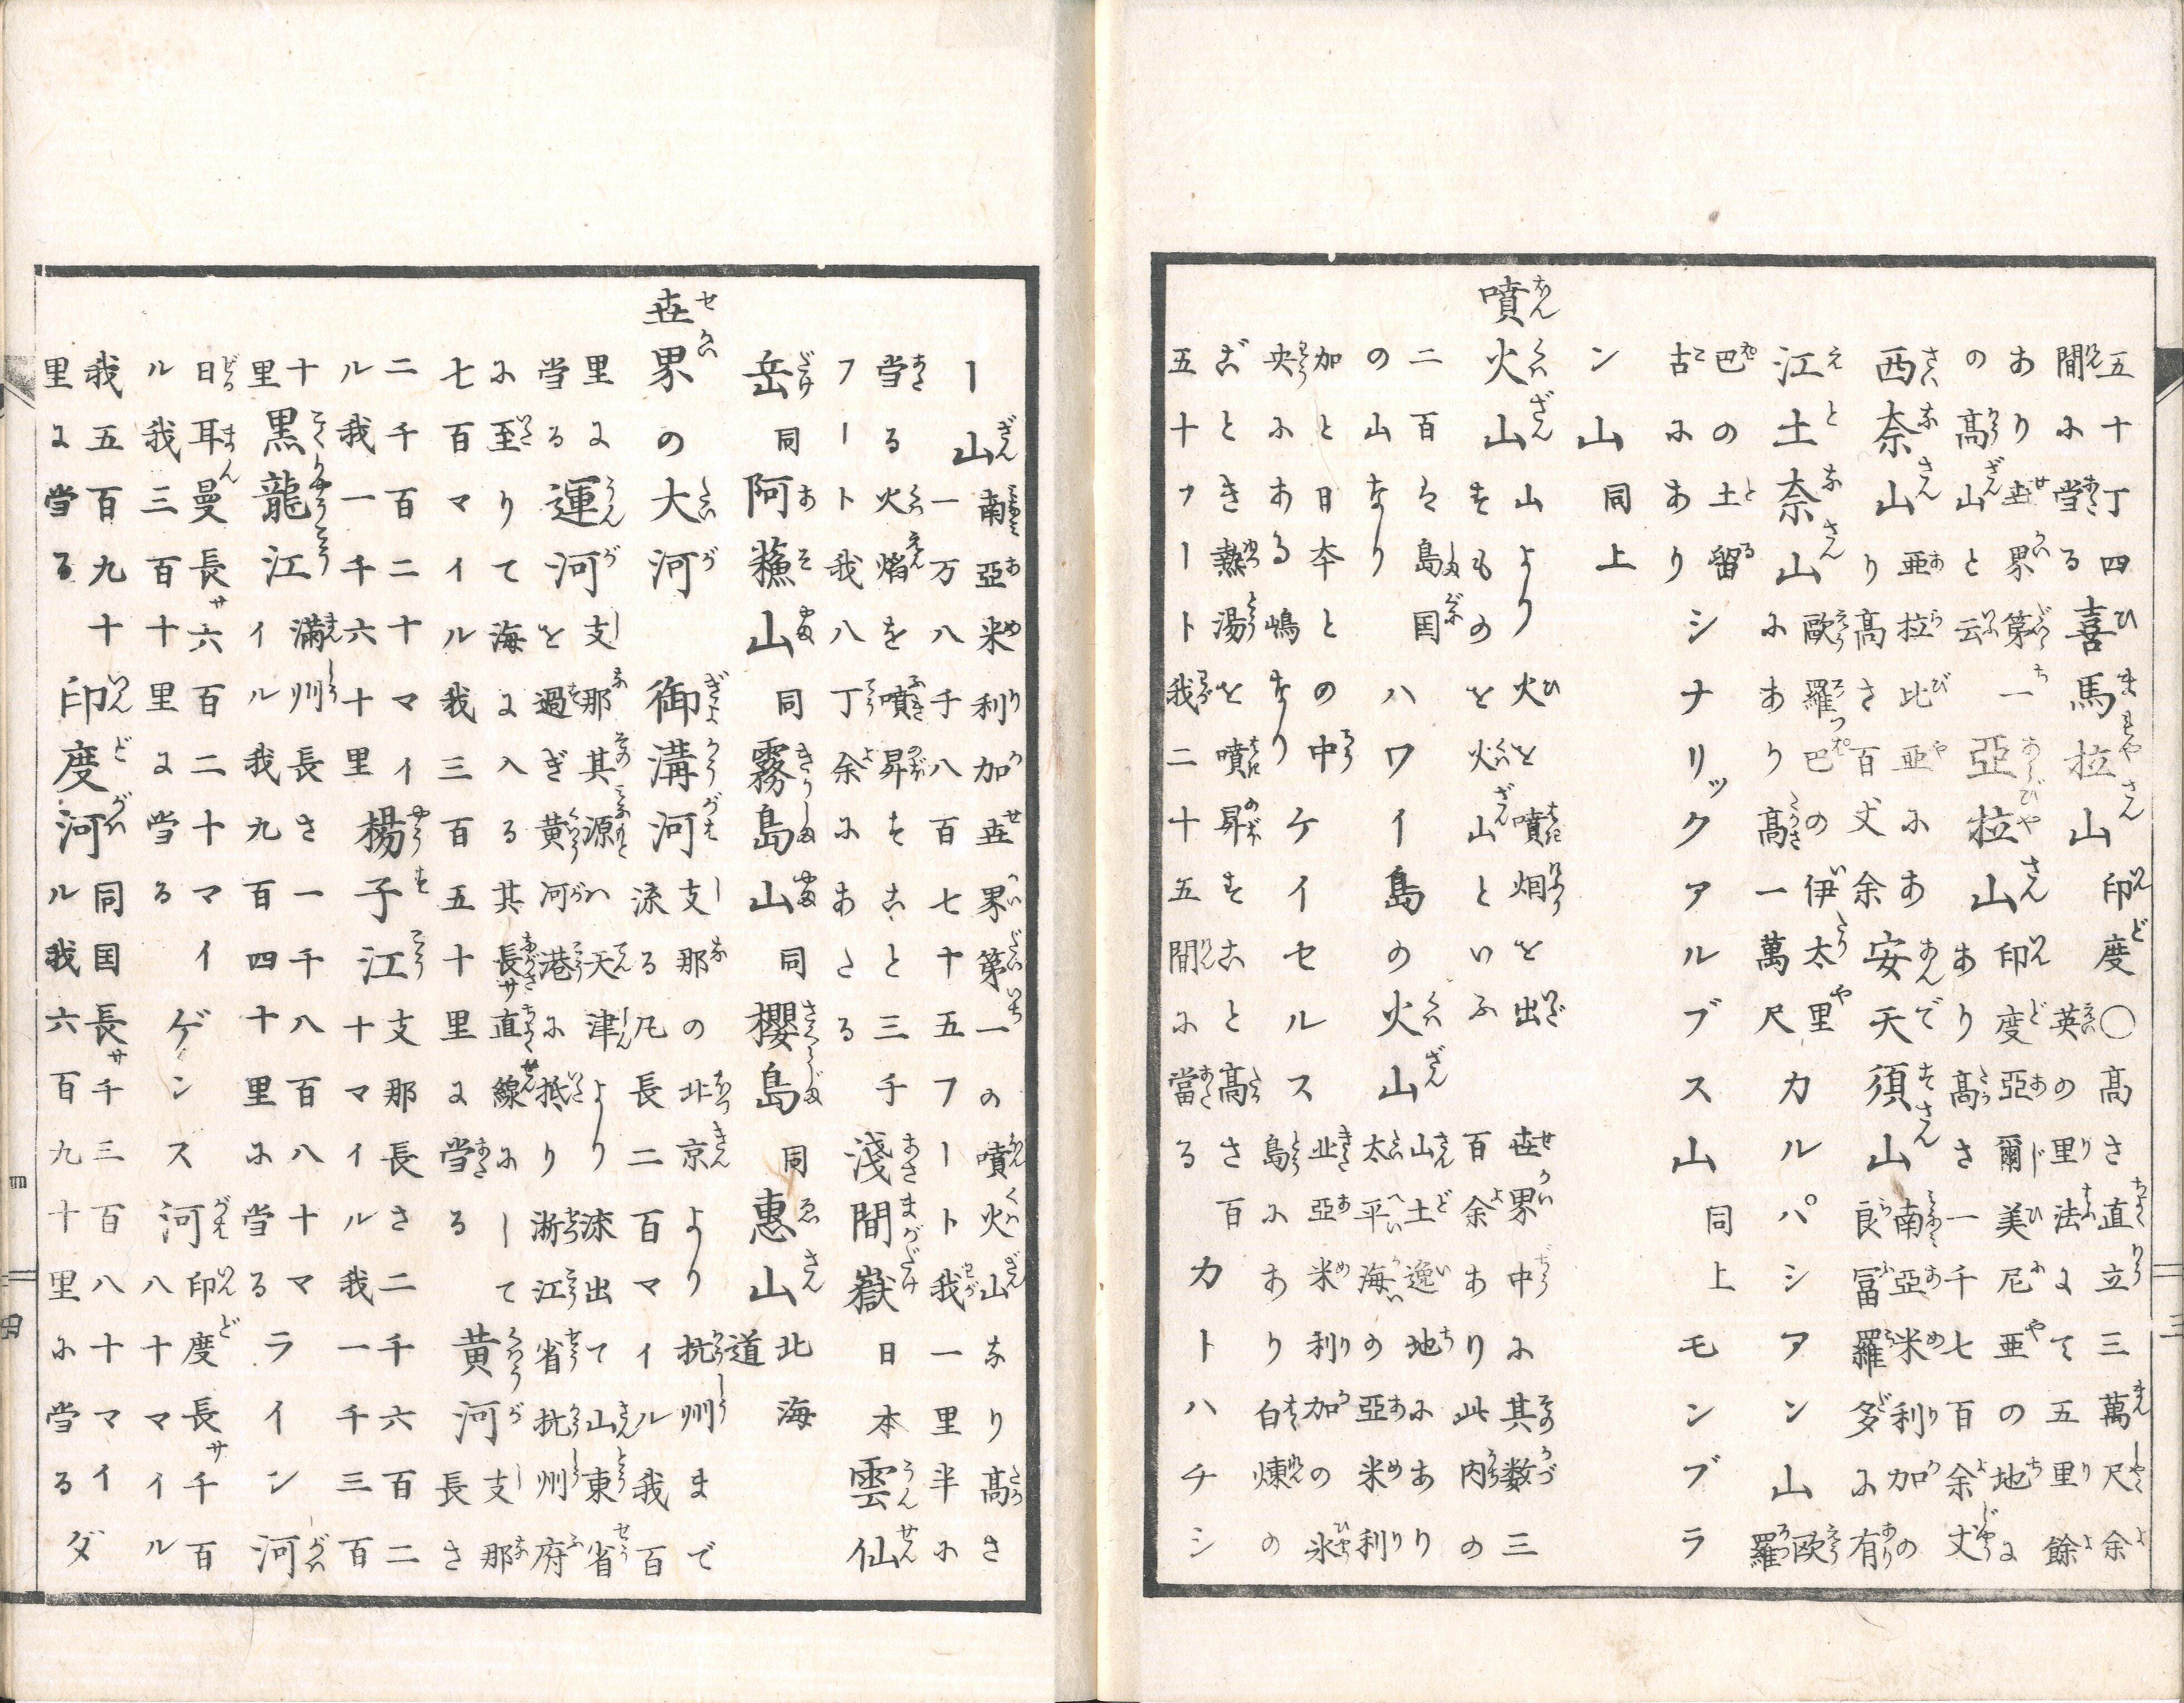 五十丁四間に当る喜馬拉山印度〇高さ直立三萬尺余英の里法にて五里餘
あり世界第一の高山と云亞拉山印度亞爾美尼亜の地にあり高さ一千七百余丈
西奈山亜拉比亜にあり高さ百丈余安天須山南亜米利加の良冨羅多に有
江土奈山歐羅巴の伊太里にあり高一萬尺カルパシアン山欧羅
巴の土留古にありシナリックアルブス山同上モンブラ
ン山同上
噴火山山より火を噴烟を出すものを火山といふ世界中に其数三百余あり此内の
二百七島国の山なりハワイ島の火山山土逸地にあり太平海の亜米利
加と日本との中央にある嶋なりケイセルス北亜米利加の氷島にあり白煉の
ごとき熱湯を噴昇すこと高さ百五十フート我二十五間に當るカトハチシ
ー山南亜米利加世界第一の噴火山なり高さ一万八千八百七十五フート我一里半に
当る火焔を噴昇すこと三千フート我八丁余にあたる淺間嶽日本雲仙
岳同阿蘓山同霧島山同櫻島同惠山北海道
世界の大河御溝河支那の北京より抗州まで流る凡長二百マイル我百
里に当る運河支那其源ハ天津より流出て山東省を過ぎ黄河港に抵り淅江省抗州府
に至りて海に入る其長サ直線にして七百マイル我三百五十里に当る黄河支那長さ
二千百二十マイル我一千六十里楊子江支那長さ二千六百二十マイル我一千三百
十里黒龍江満州長さ一千八百八十マイル我九百四十里に当るライン河
日耳曼長サ六百二十マイル我三百十里に当るゲンス河印度長サ千百八十マイル
我五百九十里に当る印度河同国長サ千三百八十マイル我六百九十里に当るダ
四